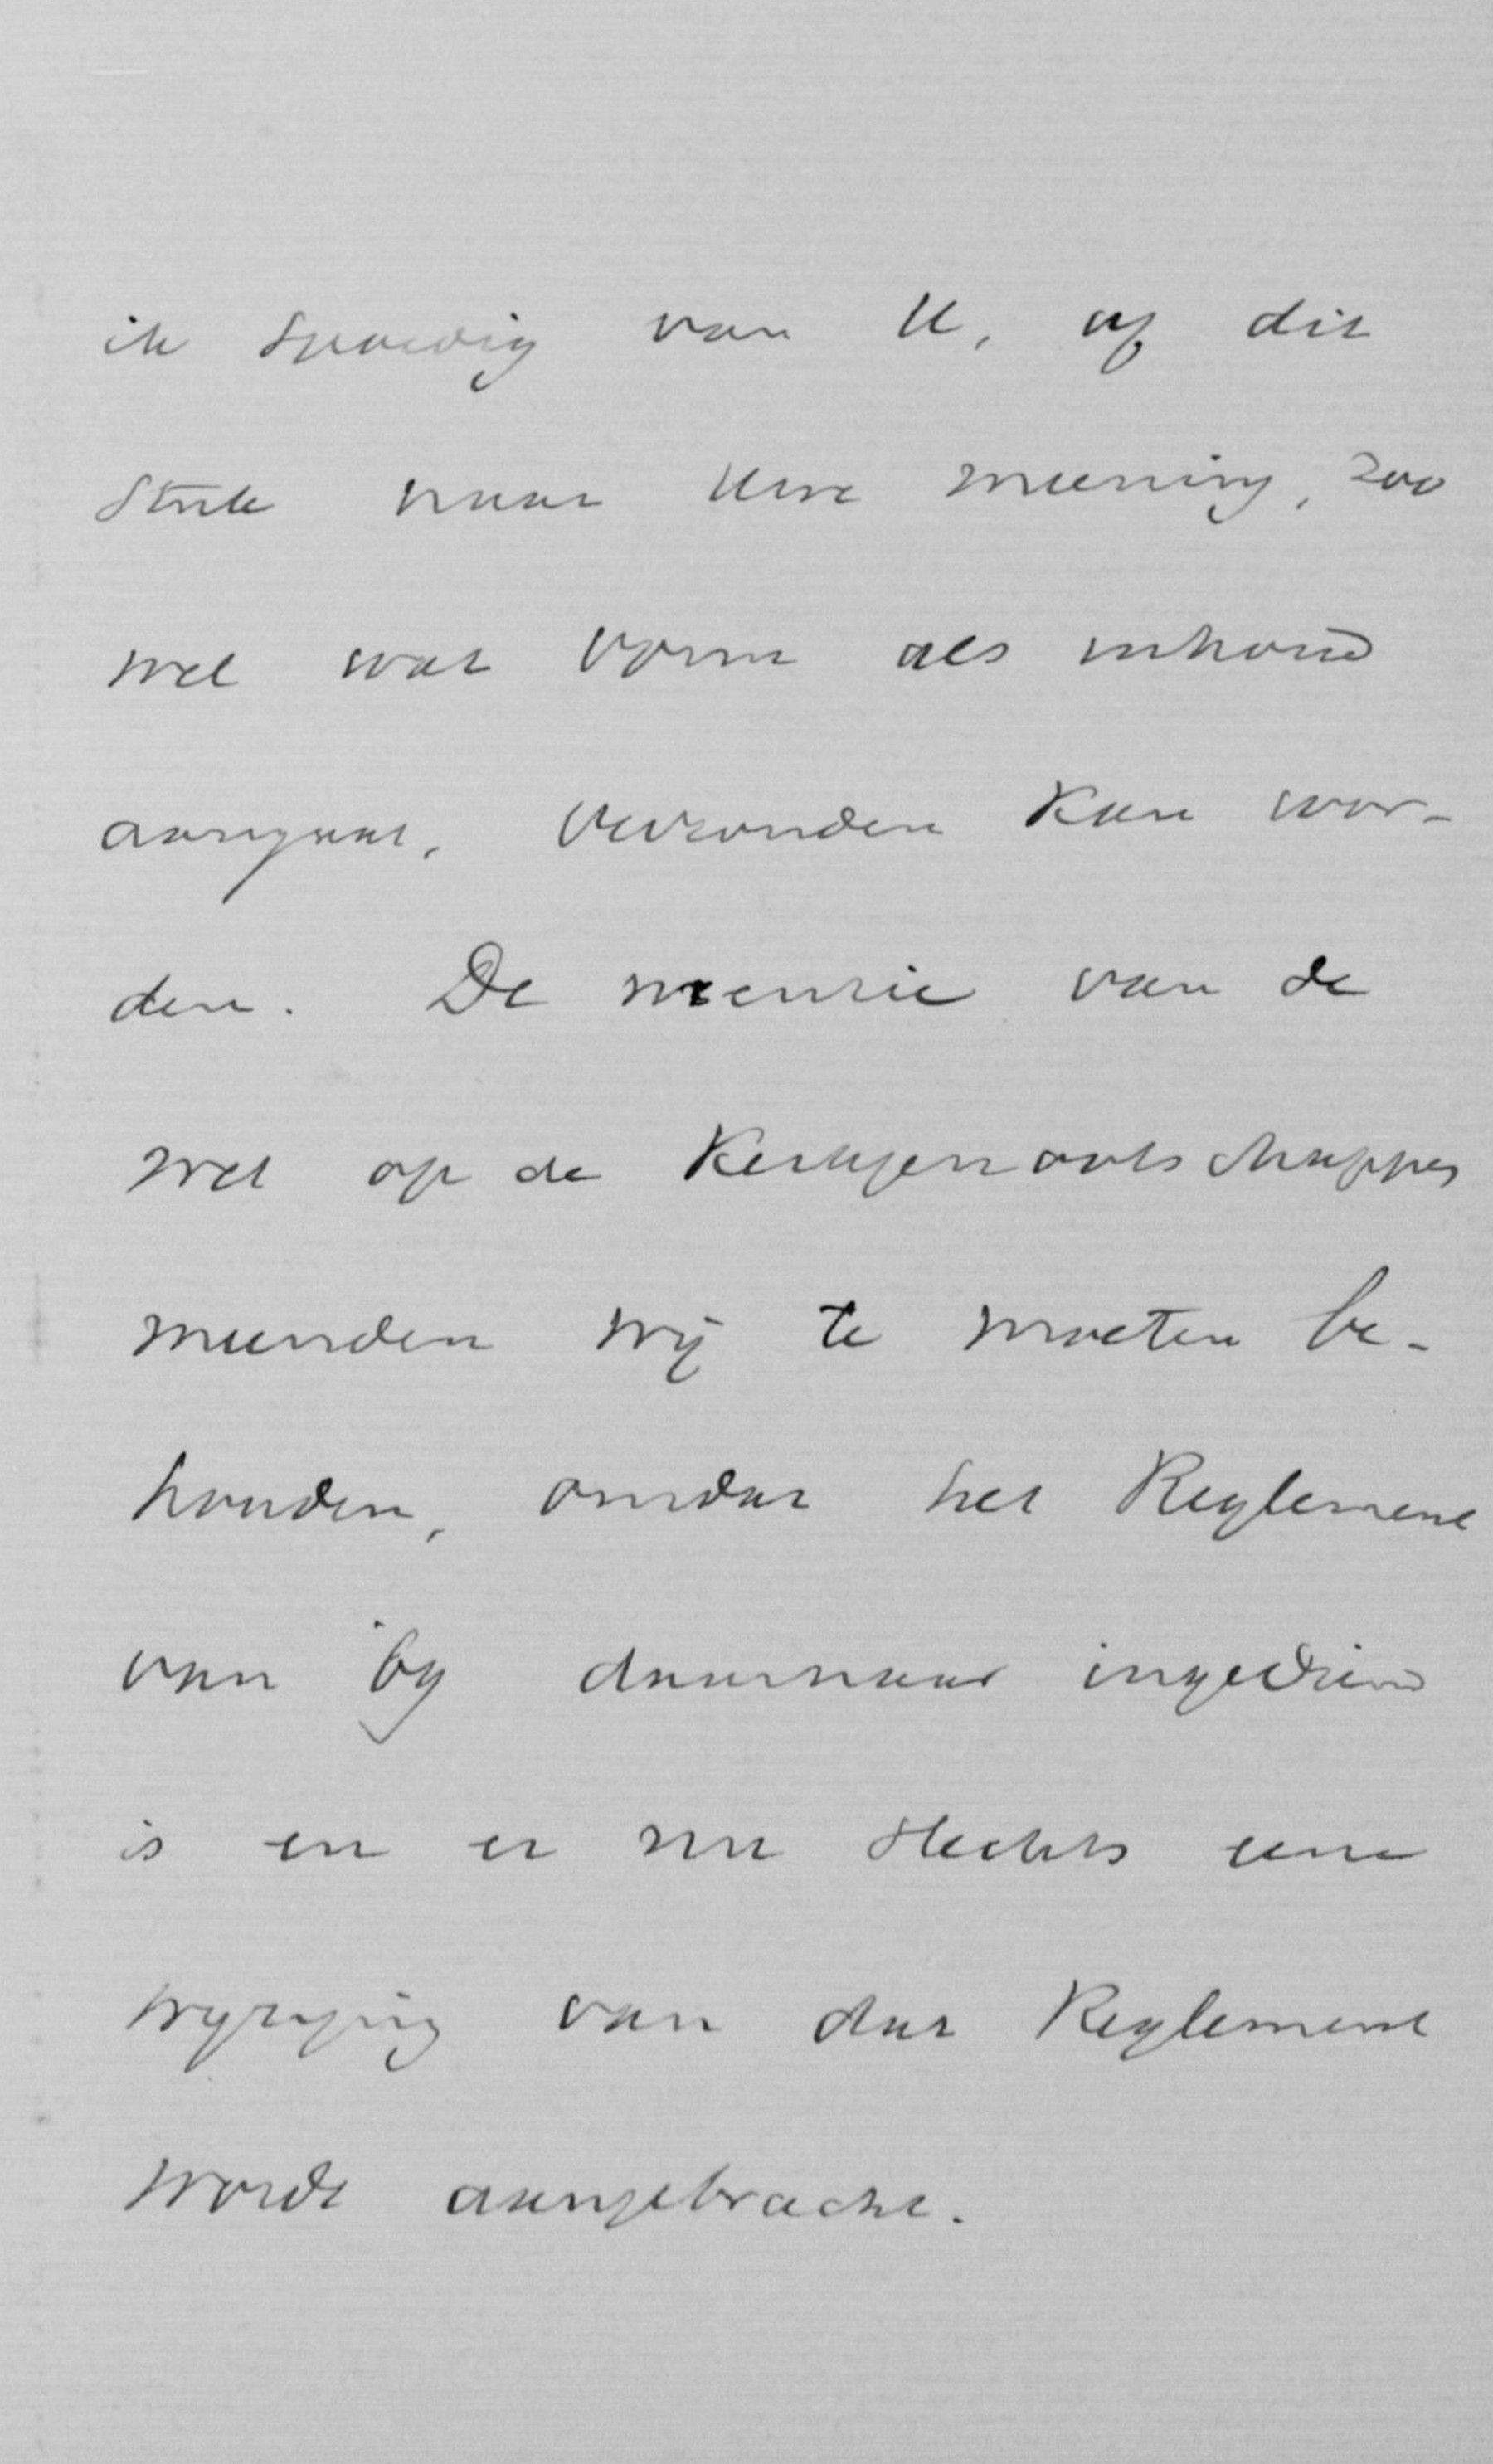 ik spoedig van U, of dit
stuk naar Uwe meening, zoo
wel wat vorm als inhoud
aangaat, verzonden kan wor-
den. De mentie van de
wet op de Kerkgenootschappen
meenden wij te moeten be-
houden, omdat het Reglement
van bij daarnaar ingediend
is en er nu slechts eene
wijziging van dat Reglement
wordt aangebracht.